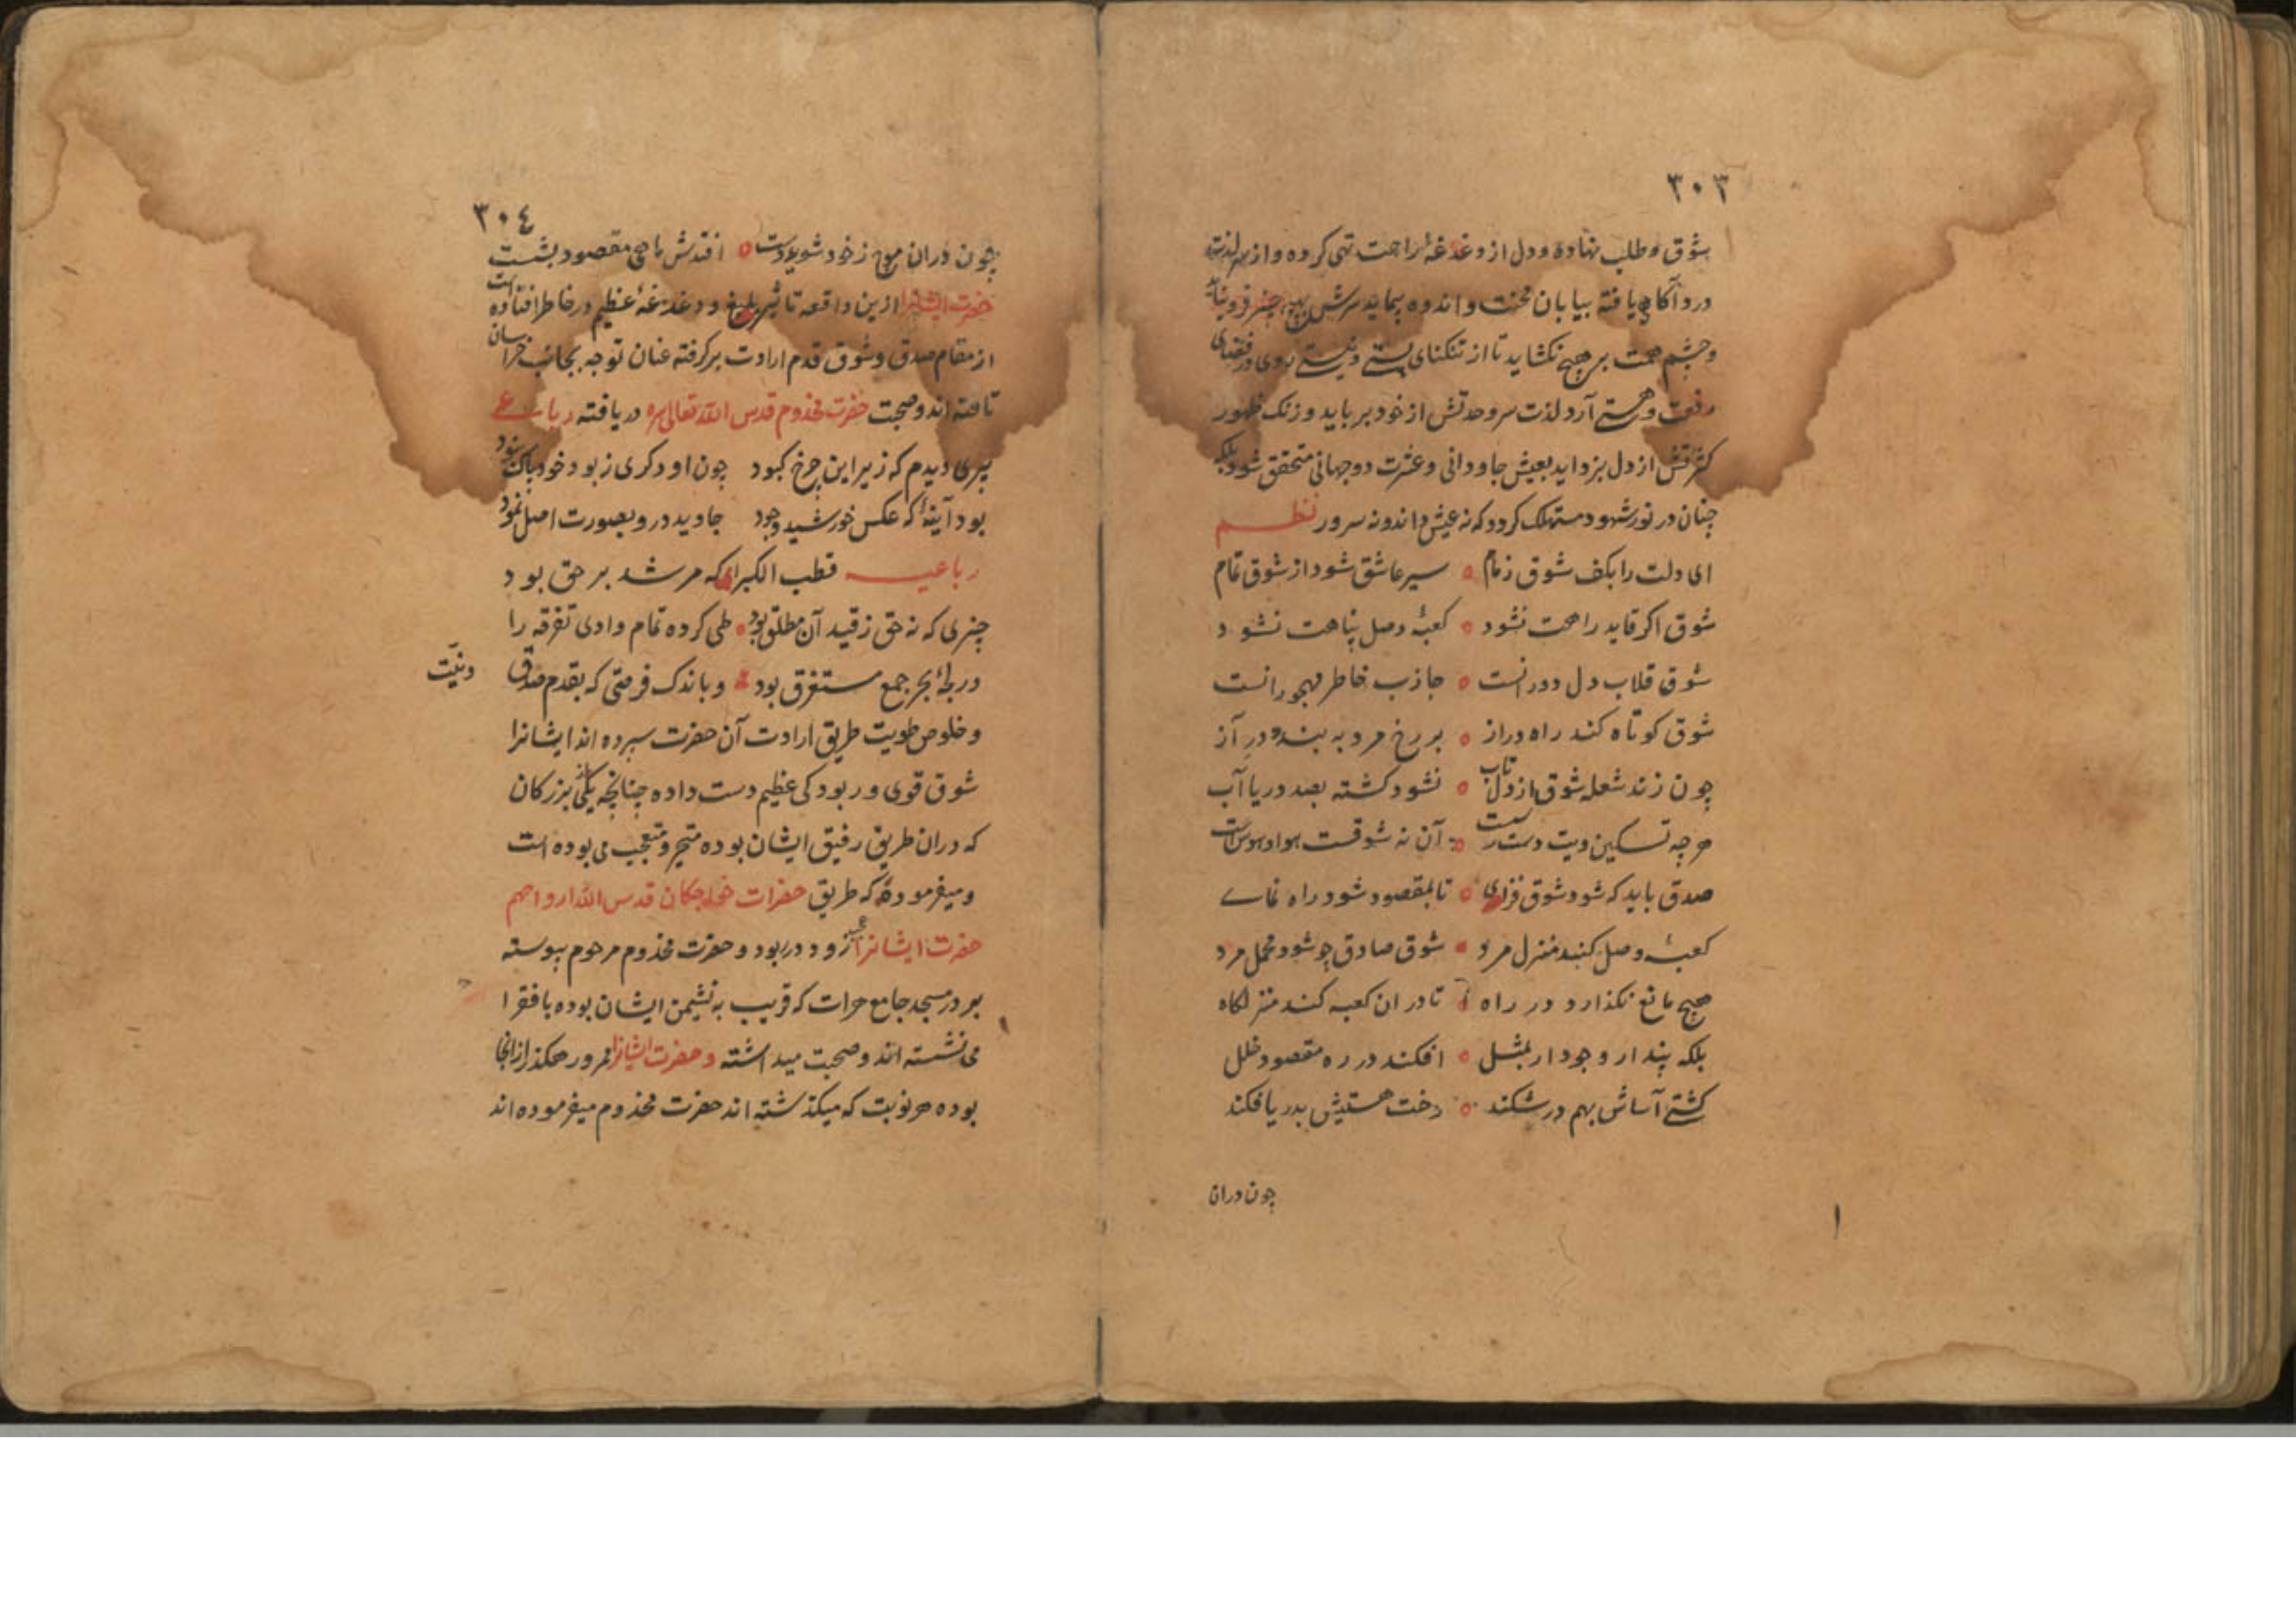 ٣٠٣
شوق و طلب نهاده و دل از دغدغهٔ راحت تهی کرده و از سر لذت
درد آکاهی یافته بیابان محنت و اندوه پیماید سرش بهیچ چیز فرو نیاید
و چشم همت بر هیچ نکشاید تا از تنکنای پستی و نیستی روی در فضای
رفعت و هستی آرد لذت سر وحدتش از خود برباید و زنک ظهور
کثرتش از دل بزداید بعیش جاودانی و عشرت دوجهانی متحقق شود بلکه
چنان در نور شهود مستهلک کردد که نه عیش داند و نه سرور نظم
ای دلت را بکف شوق زمام ه سیر عاشق شود از شوق تمام
شوق اکر قاید راهت نشود ه کعبهٔ وصل پناهت نشود
شوق قلاب دل دورانست ه جاذب خاطر مهجورانست
شوق کوتاه کند راه دراز ه بر رخ مرد به بندد در آز
چون زند شعله شوق از دل تاب ه نشود کشته بصد دریا آب
هرچه تسکین ویت دست رست ه آن نه شوقست هوا و هوس است
صدق باید که شود شوق فزای ه تا بمقصود شود راه نمای
کعبهٔ وصل کند منزل مرد ه شوق صادق چو شود محمل مرد
هیچ مانع نکذارد در راه ه تا در ان کعبه کند منزلکاه
بلکه پندار وجود ار بمثل ه افکند در ره مقصود خلل
کشتی آساش بهم درشکند ه رخت هستیش بدریا فکند
چون دران
٣٠٤
چون دران موج ز خود شوید دست ه افتدش ماهی مقصود بشست
حضرت ایشانرا ازین واقعه تاثیر بلیغ و دغدغهٔ عظیم در خاطر افتاده است
از مقام صدق و شوق قدم ارادت برکرفته عنان توجه بجانب خراسان
تافته اند و صحبت حضرت مخدوم قدس الله تعالی سره دریافته رباعی
پیری دیدم که زیر این چرخ کبود چون او دکری ز بود خود پاک نبود
بود آینهٔ که عکس خورشید وجود جاوید درو بصورت اصل نمود
رباعیه قطب الکبرای که مرشد بر حق بود
چیزی که نه حق ز قید آن مطلق بود ه طی کرده تمام وادی تفرقه را
در لجهٔ بحر جمع مستغرق بود ه و باندک فرصتی که بقدم صدق و نیّت
و خلوص طویت طریق ارادت آن حضرت سپرده اند ایشانرا
شوق قوی و ربودکی عظیم دست داده چنانچه یکی از بزرکان
که دران طریق رفیق ایشان بوده متحیر و متعجب می بوده است
و میفرموده که طریق حضرات خواجکان قدس الله ارواحهم
حضرت ایشانرا عجب زود در ربود و حضرت مخدوم مرحوم پیوسته
بر در مسجد جامع هرات که قریب به نشیمن ایشان بوده با فقرا
می نشسته اند و صحبت میداشته و حضرت ایشانرا ممر و رهکذر از انجا
بوده هر نوبت که میکذشته اند حضرت مخدوم میفرموده اند